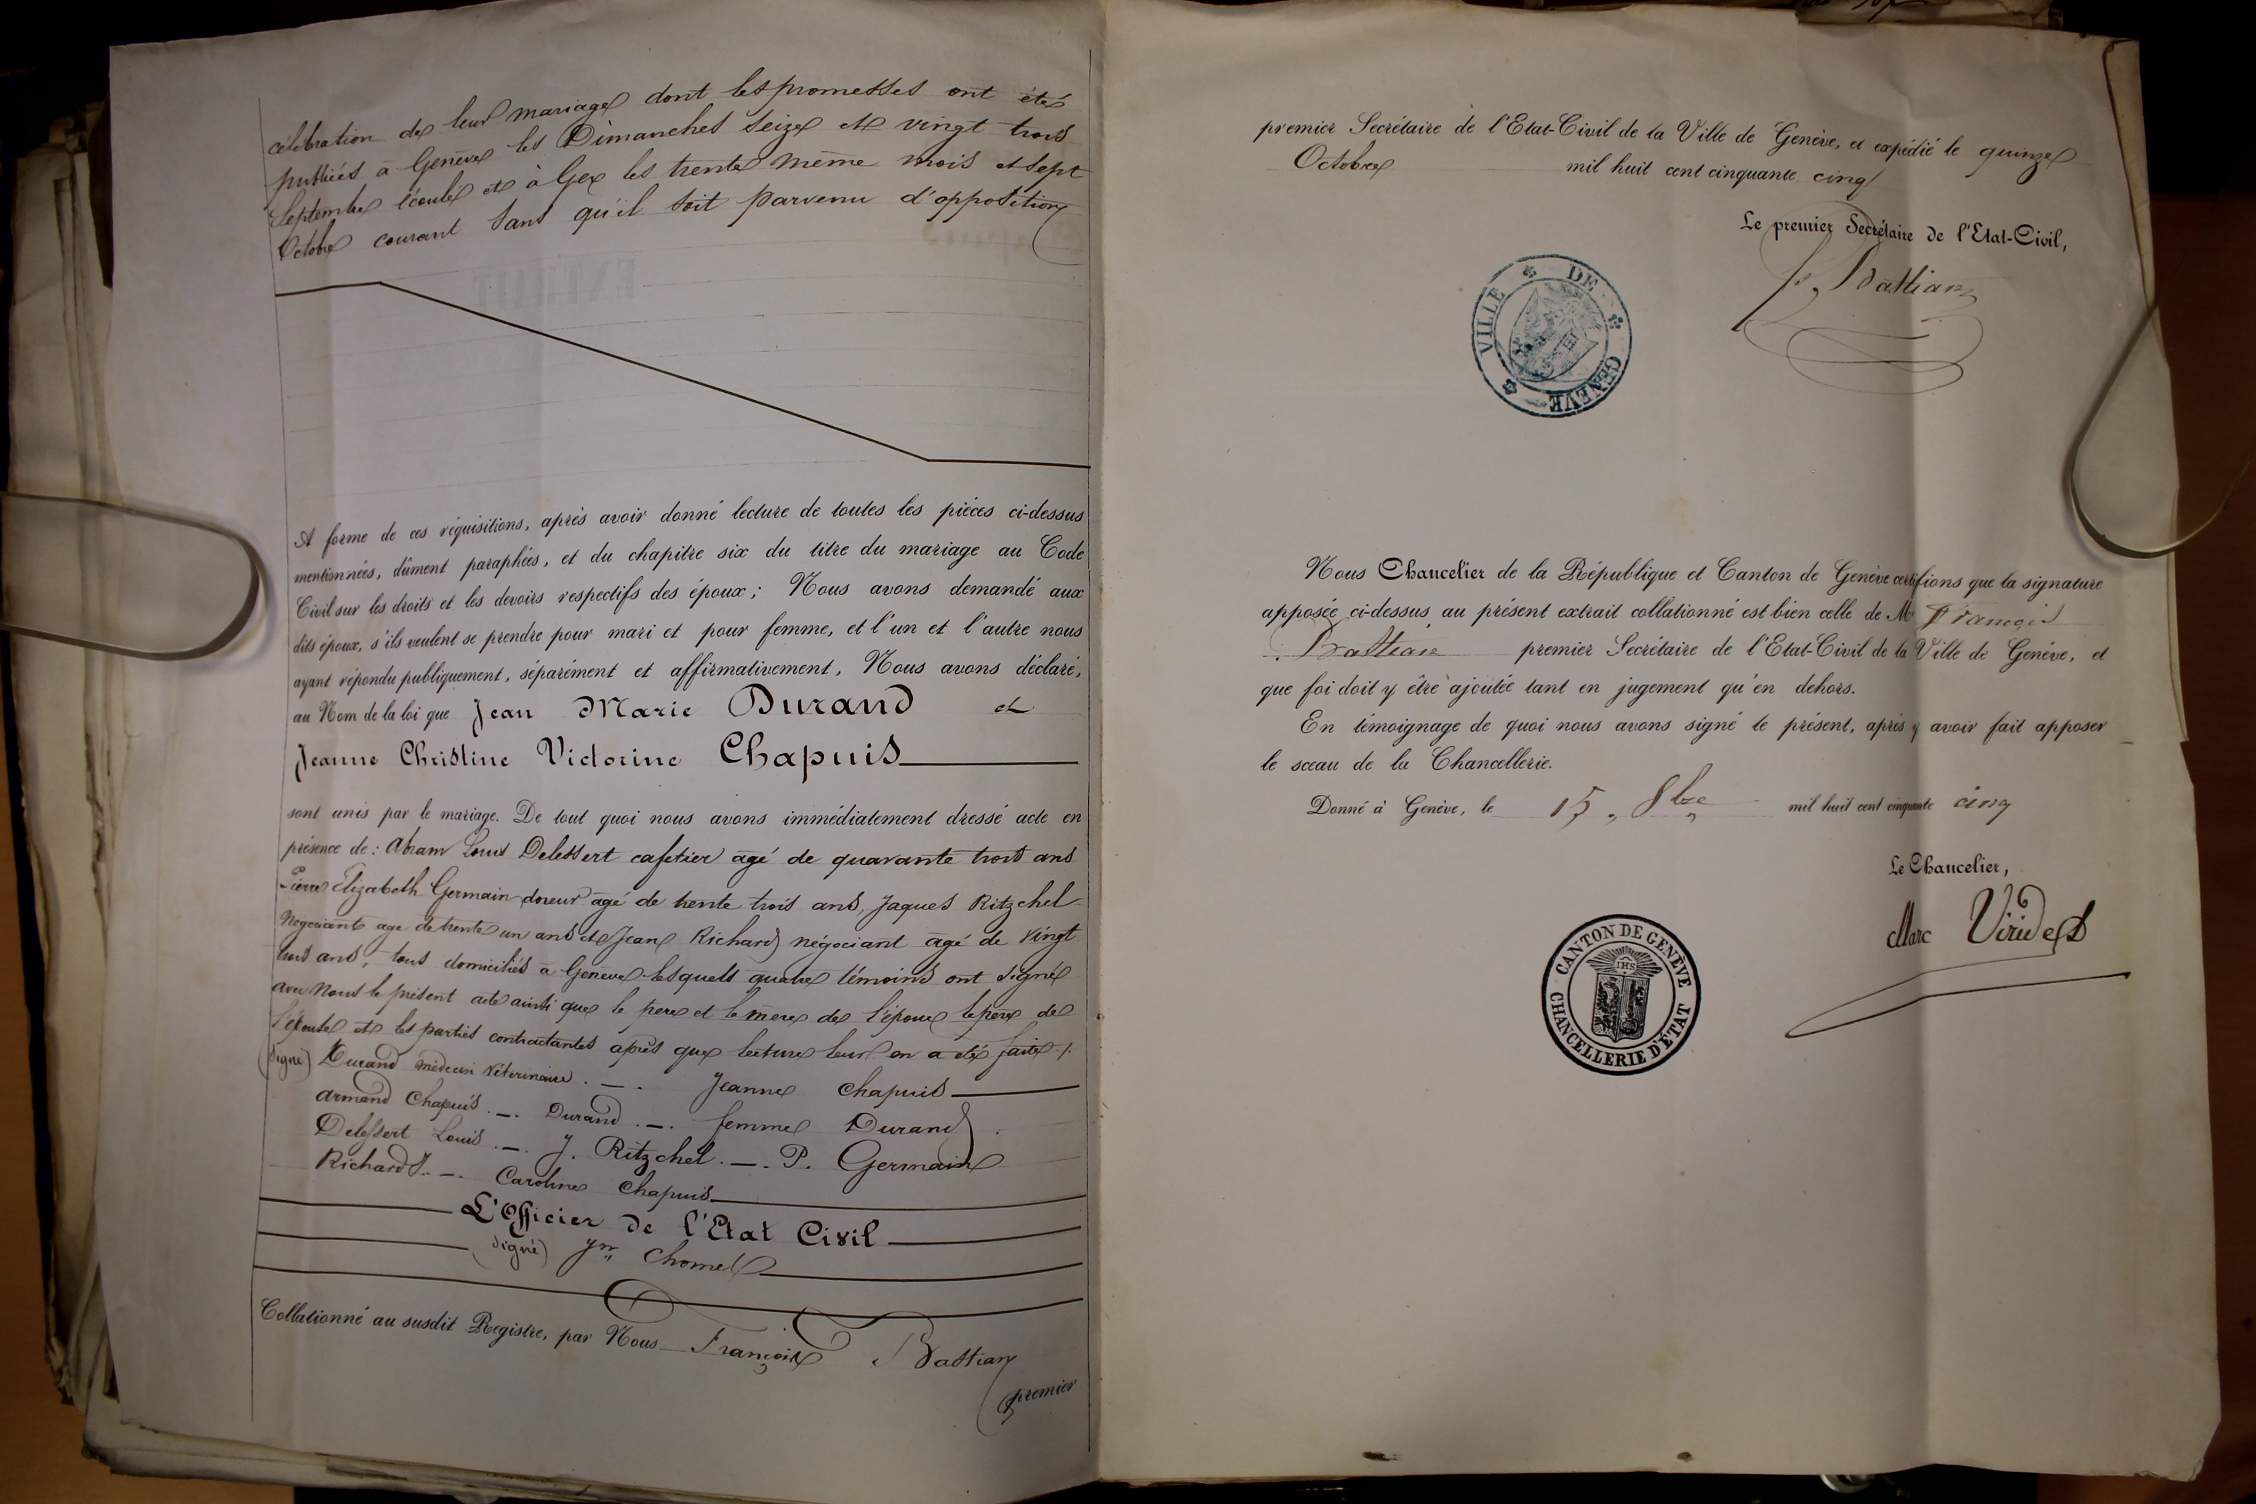 célébration de leur mariage dont les promesses ont été
publiés à Genève les Dimanches seize et vingt trois
Septembre écoulé et à Gex les trente même mois et sept
Octobre courant sans qu'il soit parvenu d'opposition
A forme de ces réquisitions, après avoir donné lecture de toutes les pièces ci-dessus
mentionnées, dûment paraphées, et du chapitre six du titre du mariage au Code
Civil sur les droits et les devoirs respectifs des époux; Nous avons demandé aux
dits époux, s'ils veulent se prendre pour mari et pour femme, et l'un et l'autre nous
ayant répondu publiquement, séparément et affirmativement, Nous avons déclaré,
au Nom de la loi que Jean Marie Durand et
Jeanne Christine Victorine Chapuis
sont unis par le mariage. De tout quoi nous avons immédiatement dressé acte en
présence de: Abram Louis Delessert cafetier agé de quarante trois ans
Pierre Elizabeth Germain doreur agé de trente trois ans, Jaques Ritzchel
Négociant age de trente un ans et Jean Richard négociant agé de vingt
trois ans, tous domiciliés à Genève lesquels quatre témoins ont signé
avec Nous le présent acte ainsi que le père et la mère de l'époux le père de
l'épouse et les parties contractantes après que lecture leur en a été faite /.
(signé) Durand médecin Vétérinaire . —. Jeanne Chapuis
Armand Chapuis . —. Durand . —. femme Durand .
Delessert Louis . —. J. Ritzchel . —. P. Germain
Richard J. . —. Caroline Chapuis
L'Officier de l'Etat Civil
(signé) Jn Chomel
Collationné au susdit Registre, par Nous François Bastian
premier
premier Secrétaire de l'Etat-Civil de la Ville de Genève, et expédié le quinze
Octobre mil huit cent cinquante cinq
Le premier Secrétaire de l'Etat-Civil,
f. Bastian
VILLE DE GENEVE
Nous Chancelier de la République et Canton de Genève certifions que la signature
apposée ci-dessus, au présent extrait collationné est bien celle de Mr François
Bastian premier Secrétaire de l'Etat-Civil de la Ville de Genève, et
que foi doit y être ajoutée tant en jugement qu'en dehors.
En témoignage de quoi nous avons signé le présent, après y avoir fait apposer
le sceau de la Chancellerie.
Donné à Genève, le 15, 8bre mil huit cent cinquante cinq
Le Chancelier,
Marc Viridet
CANTON DE GENÈVE
IHS
CHANCELLERIE D'ÉTAT